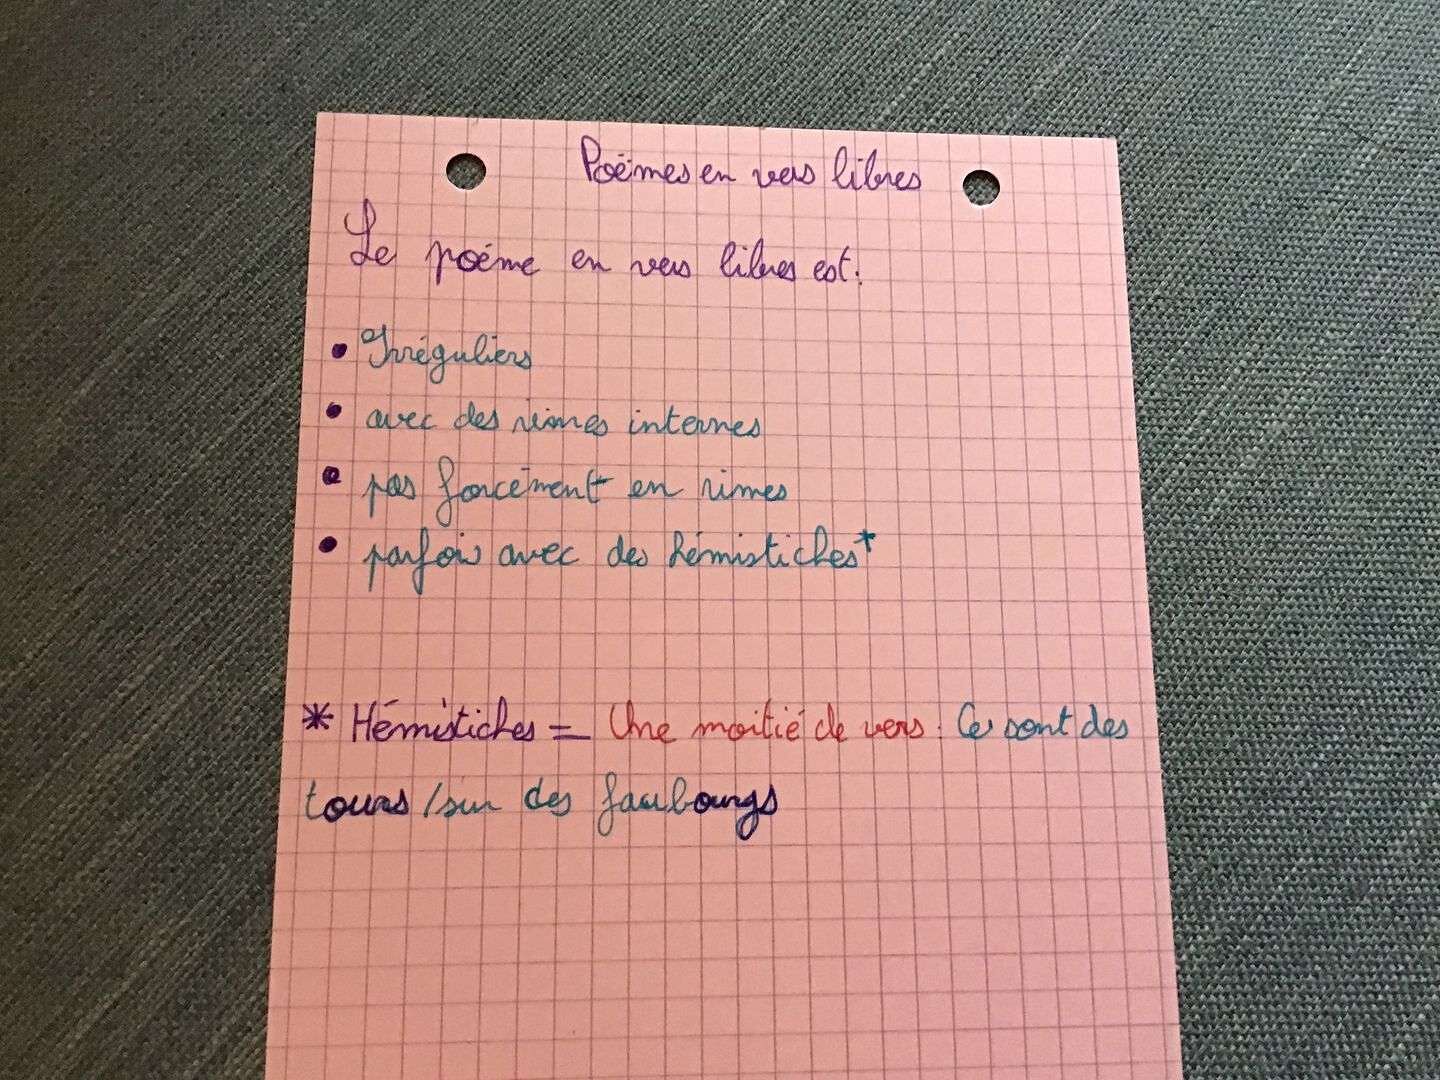 Poëmes en vers libres
Le poéme en vers libres est:
• Irréguliers
• avec des rimes internes
• pas forcément en rimes
• parfois avec des hémistiches*
* Hémistiches = Une moitié de vers. Ce sont des
tours / sur des faubourgs